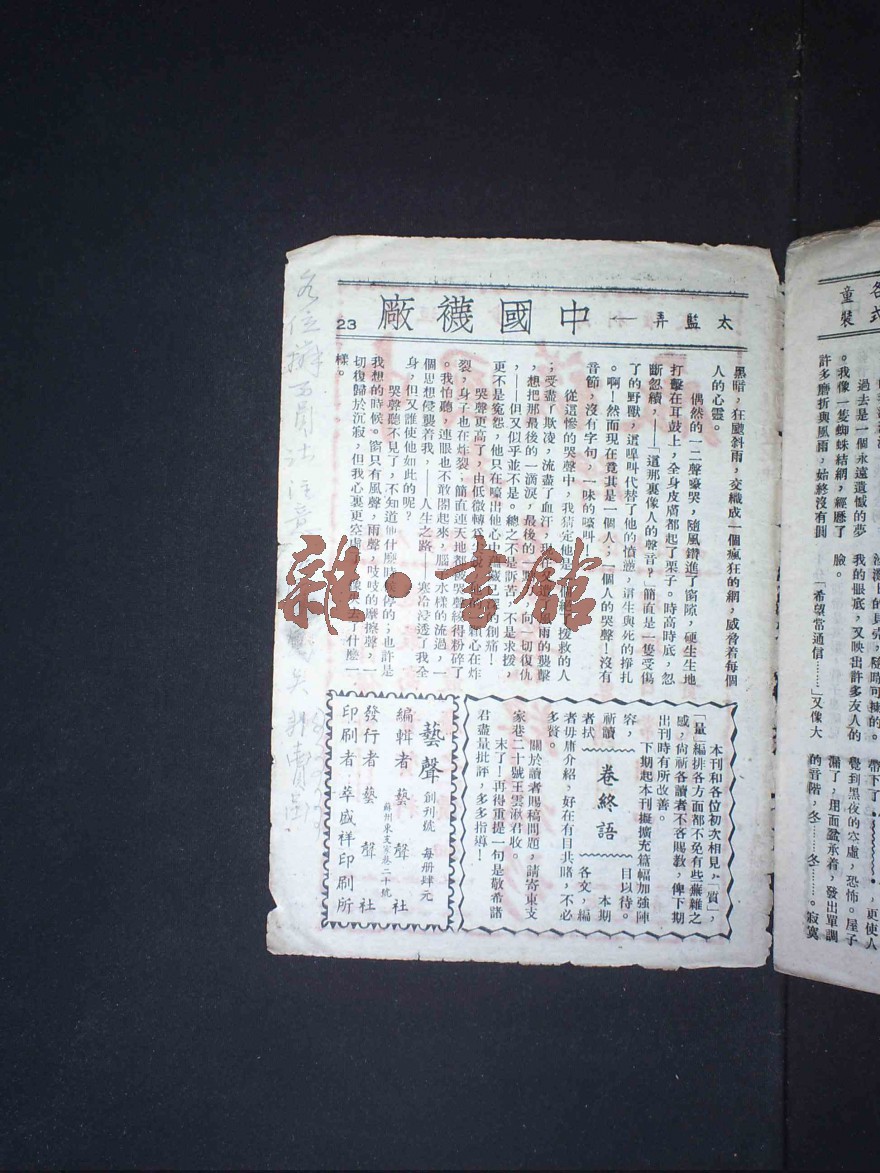 太監弄—中國襪廠
23
黑暗，狂颶斜雨，交織成一個瘋狂的網，威脅着每個
人的心靈。
偶然的一二聲嚎哭，隨風鑽進了窗隙，硬生生地
打擊在耳鼓上，全身皮膚都起了栗子。時高時底，忽
斷忽續，——「這那裏像人的聲音？」簡直是一隻受傷
了的野獸，這嘷叫代替了他的憤懣，這生與死的掙扎
。啊！然而現在竟其是一個人；一個人的哭聲！沒有
音節，沒有字句，一味的嚎叫
從這慘的哭聲中，我猜完他是援救的人
；受盡了欺凌，流盡了血汗，雨的襲擊
，想把那最後的一滴淚，最後的一向一切復仇
，——但又似乎並不是。總之不是訴苦，不是求援，
更不是寃怨，他只在嚎出他心的創痛！
哭聲更高了，由低微轉顆心在炸
裂，身子也在炸裂；簡直連天地都被哭聲絞得粉碎了
。我怕聽，連眼也不敢閤起來，腦水樣的流過，一
個思想侵襲着我，——人生之路——寒冷浸透了我全
身，但又誰使他如此的呢？
哭聲聽不見了，不知道停的；也許是
我想的時候。窗只有風聲，雨聲，吱吱的摩擦聲，一
切復歸於沉寂，但我心裏更空虛了什麽一
樣。
本刊和各位初次相見，「質」，
「量」編排各方面都不免有些蕪雜之
感，尙祈各讀者不吝賜敎，俾下期
出刊時有所改善。
下期起本刊擬擴充篇幅加強陣
容，祈讀者拭目以待。
卷終語
本期各文，編
者毋庸介紹，好在有目共睹，不必
多贅。
關於讀者賜稿問題，請寄東支
家巷二十號王雲湫君收。
末了！再得重提一句是敬希諸
君盡量批評，多多指導！
藝聲 創刊號 每册肆元
編輯者 藝聲社
蘇州東支家巷二十號
發行者 藝聲社
印刷者 萃盛祥印刷所
雜·書館
各式
童裝
過去是一個永遠遺憾的夢
。我像一隻蜘蛛結網，經歷了
許多磨折與風雨，始終沒有圓
貝壳，隨時可揀的。
我的眼底，又映出許多友人的
臉。
「希望常通信……」又像大
，更使人
覺到黑夜的空虛，恐怖。屋子
漏了，用面盆承着，發出單調
的音階，冬……冬……。寂寞